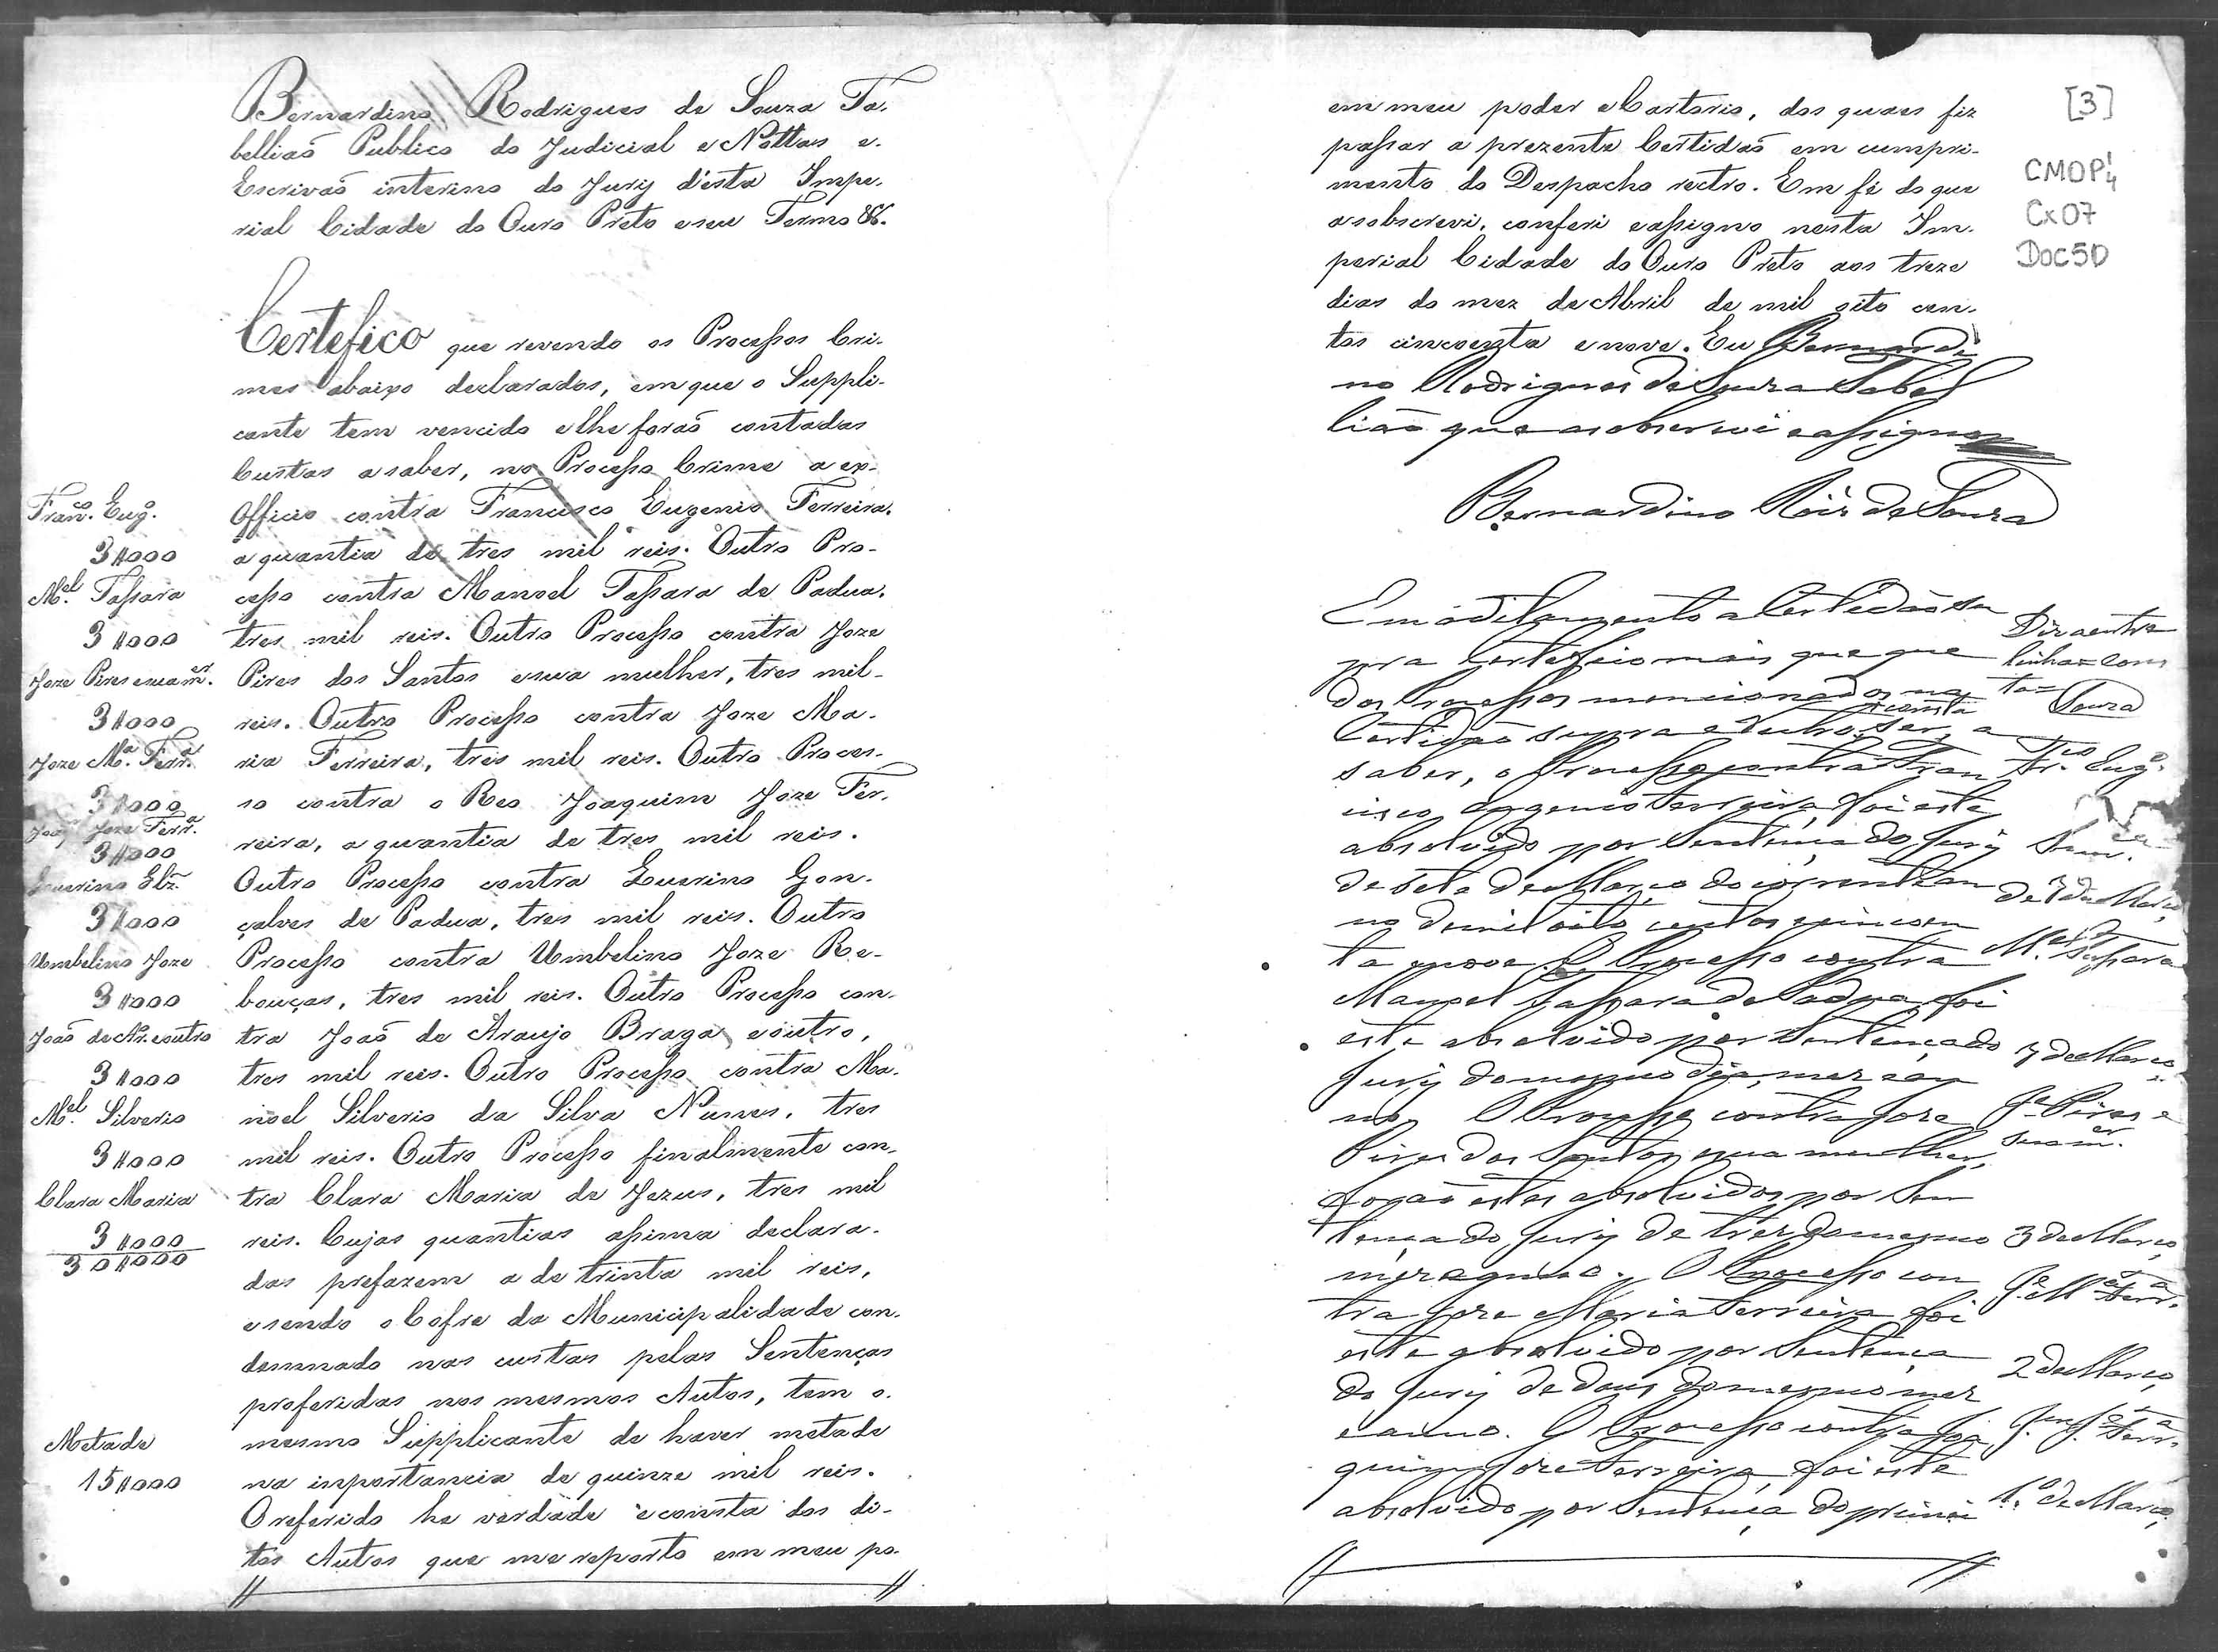 Bernardino Rodrigues de Souza Ta-
belliaõ Publico do Judicial e Nottas e
Escrivaõ interino do Jury d'esta Impe-
rial Cidade do Ouro Preto e seu Termo &ª.
Certefico que revendo os Processos Cri-
mes abaixo declarados, em que o Suppli-
cante tem vencido e lhe foraõ contadas
Custas a saber, no Processo Crime a ex-
Franco. Eugo.
Officio contra Francisco Eugenio Ferreira,
3#000
a quantia de tres mil reis. Outro Pro-
Mel. Tassara
cesso contra Manoel Tassara de Padua,
3#000
tres mil reis. Outro Processo contra Joze
Joze Pires e sua mer.
Pires dos Santos e sua mulher, tres mil
3#000
reis. Outro Processo contra Joze Ma-
Joze Ma. Ferra.
ria Ferreira, tres mil reis. Outro Proces-
3#000
so contra o Reo Joaquim Joze Fer-
Joaqm Joze Ferra.
3#000
reira, a quantia de tres mil reis.
Outro Processo contra Zuerino Gon-
3#000
çalves de Padua, tres mil reis. Outro
Umbelino Joze
Processo contra Umbelino Joze Re-
3#000
bouças, tres mil reis. Outro Processo con-
Joaõ de Ar. e outro
tra Joaõ de Araujo Braga, e outro,
3#000
tres mil reis. Outro Processo contra Ma-
Mel. Silverio
noel Silverio da Silva Nunes, tres
3#000
mil reis. Outro Processo finalmente con-
Clara Maria
tra Clara Maria de Jezus, tres mil
3#000
reis. Cujas quantias assima declara-
30#000
das prefazem a de trinta mil reis,
e sendo o Cofre da Municipalidade con-
demnado nas custas pelas Sentenças
proferidas nos mesmos Autos, tem o
Metade
mesmo Supplicante de haver metade
15#000
na inportancia de quinze mil reis.
O referido he verdade e consta dos di-
tos Autos que me reporto em meu po-
em meu poder e Cartorio, dos quaes fiz
passar a prezente Certidaõ em cumpri-
mento do Despacho rectro. Em fé do que
a sobscrevi, conferi e assigno nesta Im-
perial Cidade do Ouro Preto aos treze
dias do mez de Abril de mil oito cen-
tos cincoenta e nove. Eu Bernardi
no Rodrigues de Souza Tabel
lião que a sobscrevi e assigno
Bernardino Roiz de Souza
[3]
CMOP 1/4
Cx07
Doc50
Em aditamento a Certidão su
pra Certefico mais que que
dos Processos mencionados na
Certidão supra e dentro consta ser, a
saber, o Processo contra Fran
cisco Eugenio Ferreira, foi este
absolvido por Sentença do Jury
de sete de Março do corrente an
no de mil oito centos cincoen
ta e nove. O Processo contra
Manoel Tassara de Padua, foi
este absolvido por Sentença do
Jury do mesmo dia, mez e an
no. O Processo contra Joze
Pires dos Santos e sua mulher,
forão estes absolvidos por Sen
tença do Jury de tres do mesmo
mez e anno. O Processo con
tra Joze Maria Ferreira foi
este absolvido por Sentença
do Jury de dous do mesmo mez
e anno. O Processo contra Joa
quim Joze Ferreira, foi este
absolvido por Sentença do primei
Diz a entre
linha = cons
ta = Souza
Frco. Eugo.
de 7 de Março
Mel. Tassara
7 de Março
Je. Pires e
sua mer.
3 de Março
Je. Ma Ferra.
2 de Março
Jm. Je. Ferra.
1o. de Março